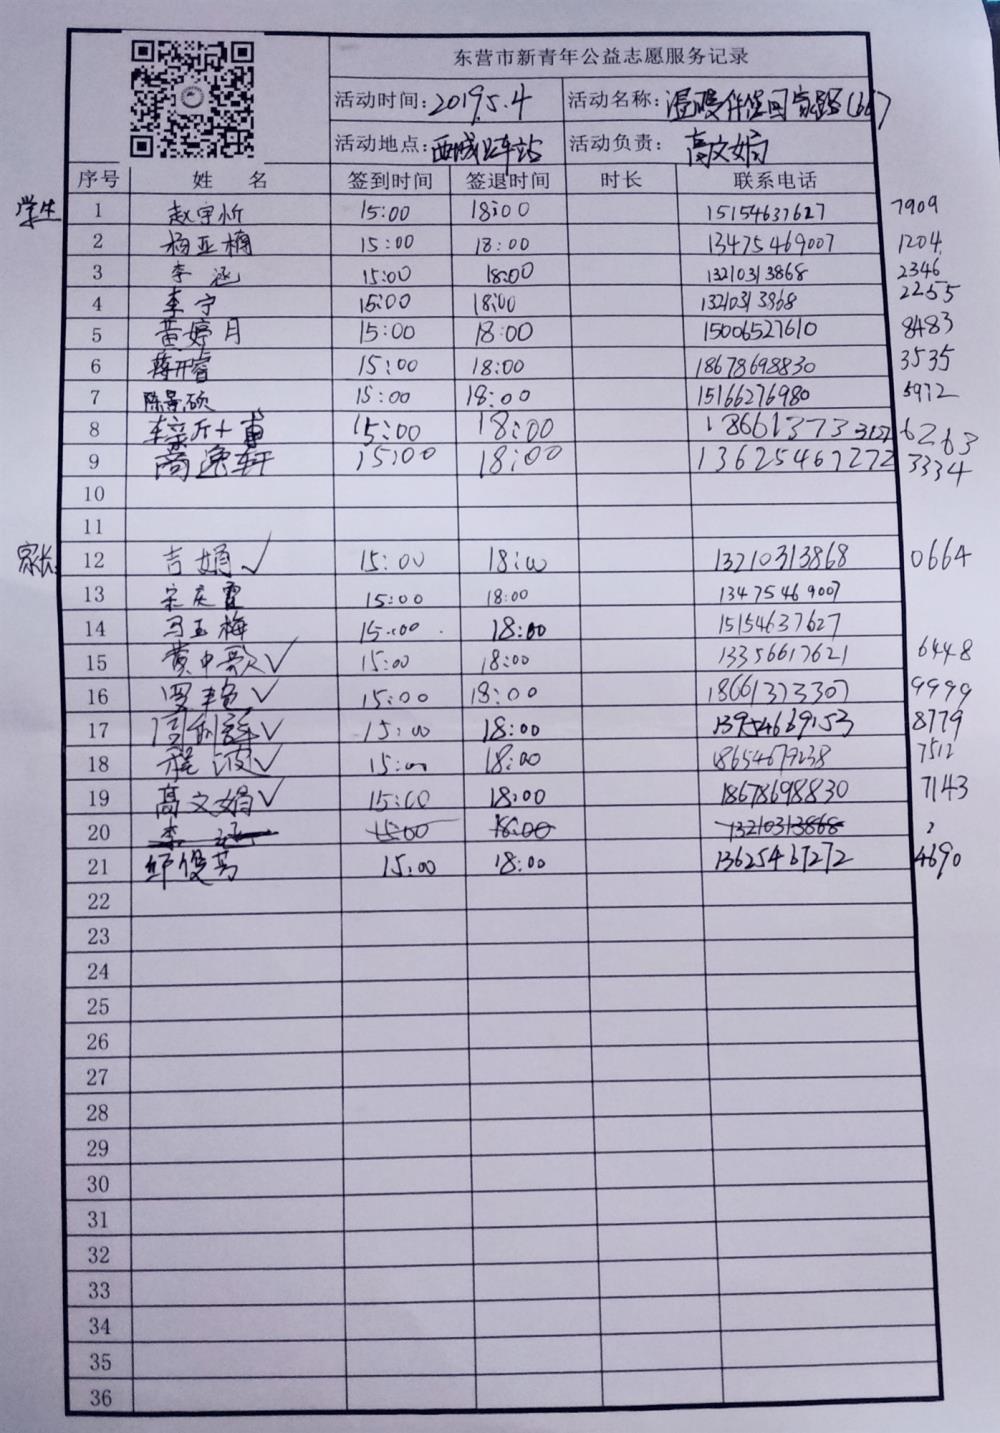 东营市新青年公益志愿服务记录
活动时间：2019.5.4 活动名称：温暖伴您回家路(66)
活动地点：西城汽车站 活动负责：高文娟
序号 姓 名 签到时间 签退时间 时长 联系电话
学生 1 赵宇忻 15:00 18:00 15154637627 7909
2 杨亚楠 15:00 18:00 13475469007 1204
3 李涵 15:00 18:00 13210313868 2346
4 李宁 15:00 18:00 13210313868 2255
5 黄婷月 15:00 18:00 15006527610 8483
6 蒋开睿 15:00 18:00 18678698830 3535
7 陈景硕 15:00 18:00 15166276980 5972
8 15:00 18:00 6263
9 高逸轩 15:00 18:00 13625467272 3334
10
11
家长: 12 吉娟 ✓ 15:00 18:00 13210313868 0664
13 宋庆霞 15:00 18:00 13475469007
14 马玉梅 15:00 18:00 15154637627
15 黄中歌 ✓ 15:00 18:00 13356617621 6448
16 罗艳 ✓ 15:00 18:00 18661373307 9999
17 ✓ 15:00 18:00 13954669153 8779
18 程波 ✓ 15:00 18:00 18654679238 7512
19 高文娟 ✓ 15:00 18:00 18678698830 7143
20 李涵 15:00 18:00 13210313868
21 15:00 18:00 13625467272 4690
22
23
24
25
26
27
28
29
30
31
32
33
34
35
36